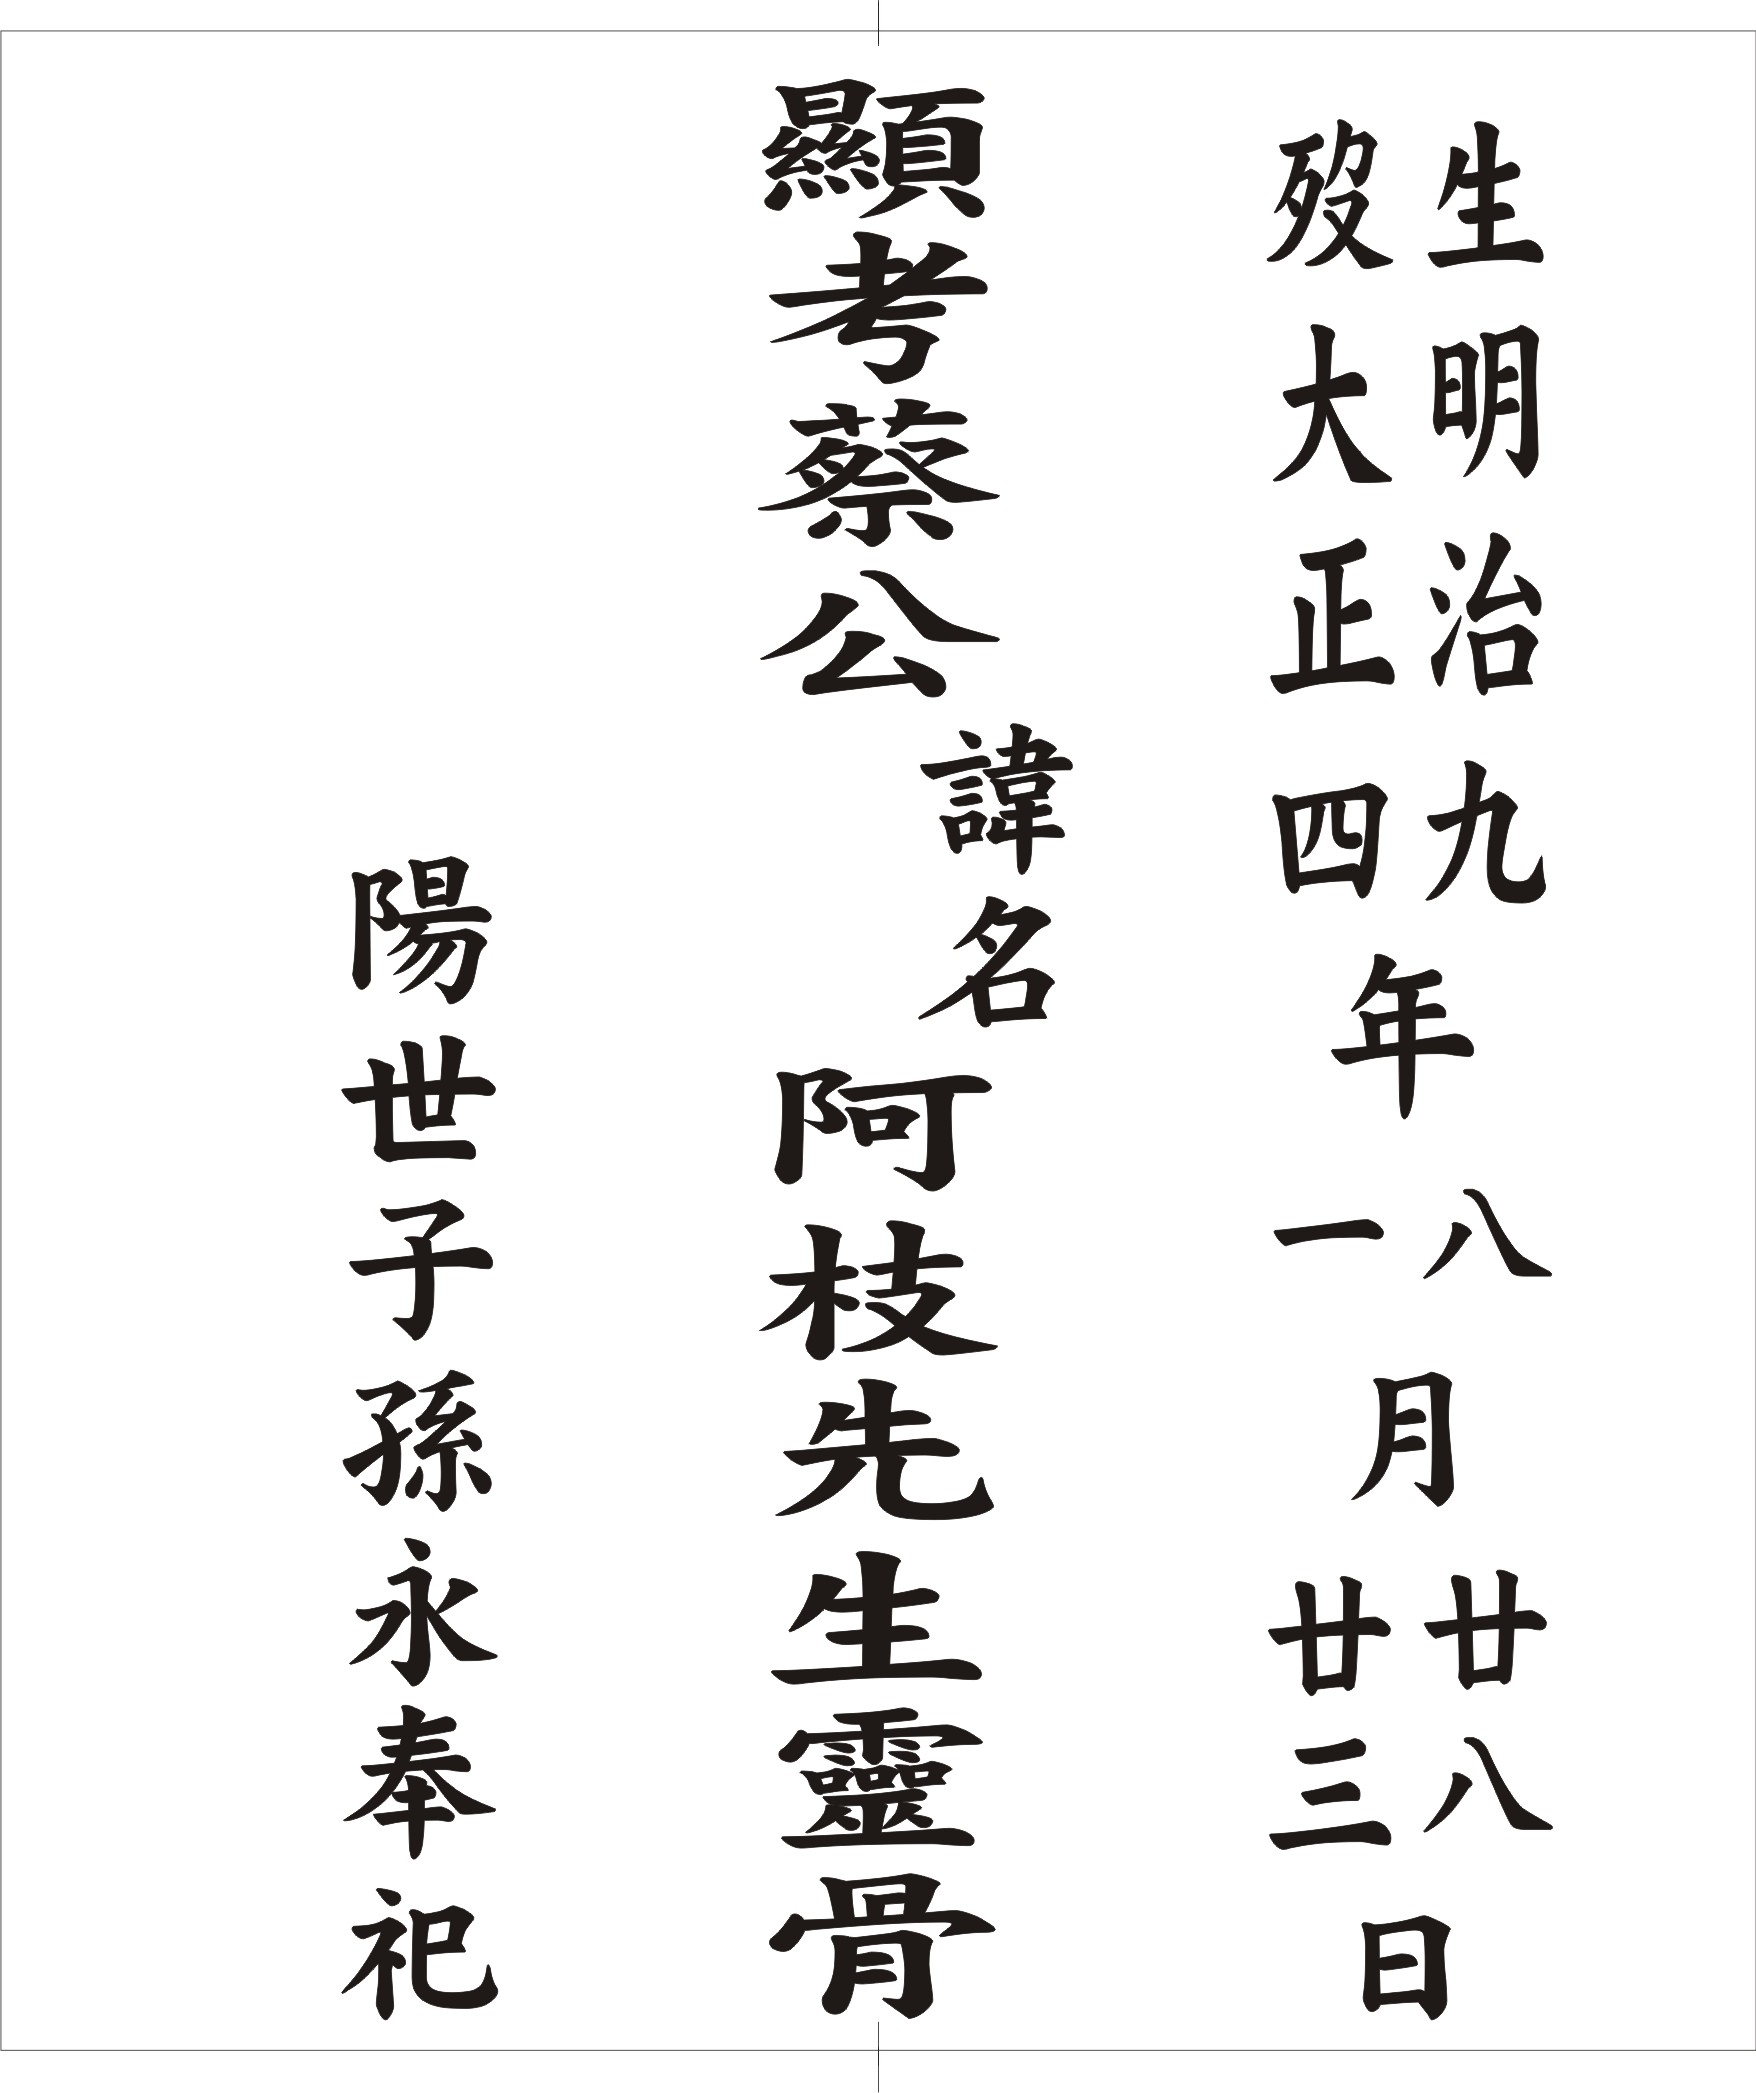 生明治九年八月廿八日
歿大正四年一月廿三日
顯考蔡公諱名阿枝先生靈骨
陽世子孫永奉祀